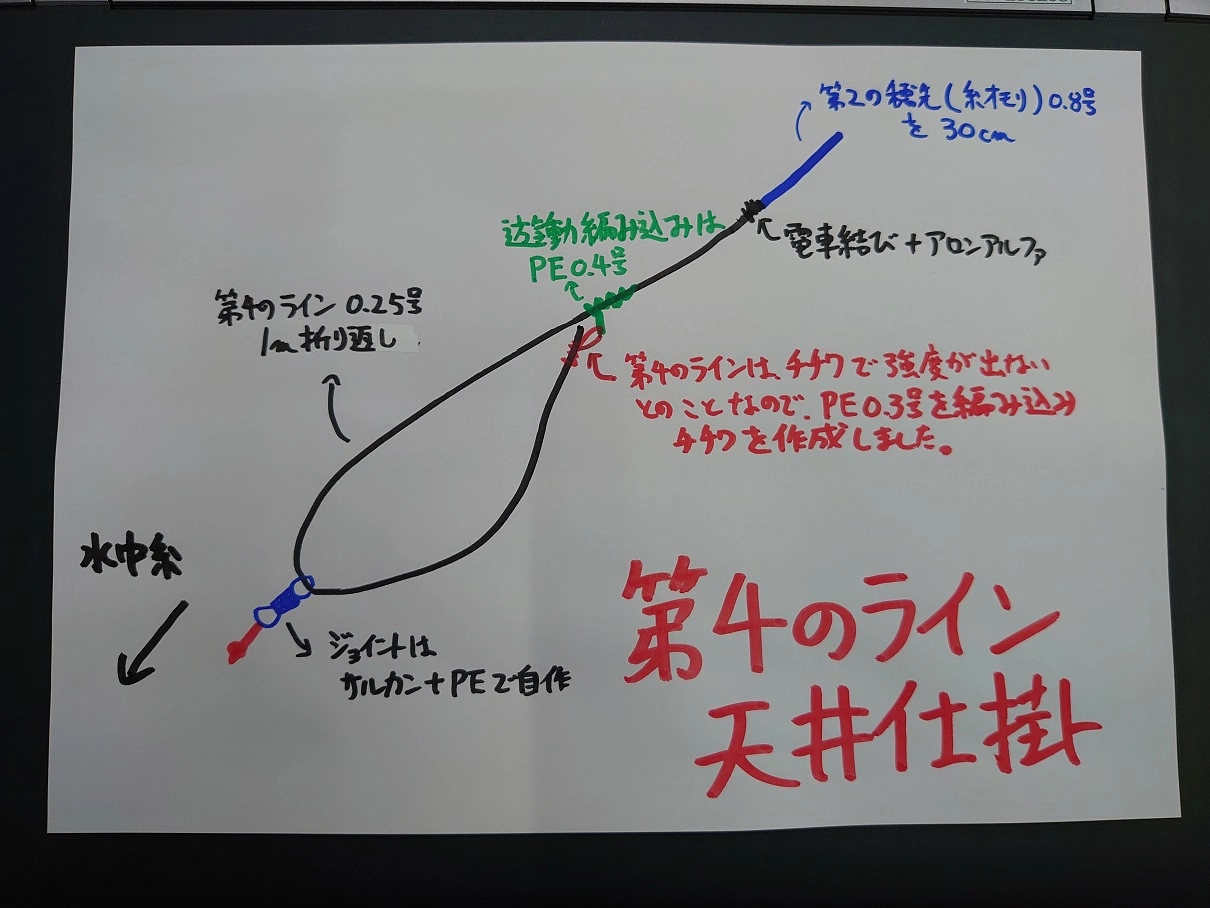 第2の穂先(糸オモリ)0.8号
を30cm
遊動編み込みは
PE0.4号
電車結び+アロンアルファ
第4のライン 0.25号
1m折り返し
第4のラインは、チチワで強度が出ない
とのことなので、PE0.3号を編み込み
チチワを作成しました。
水中糸
ジョイントは
サルカン+PEで自作
第4のライン
天井仕掛